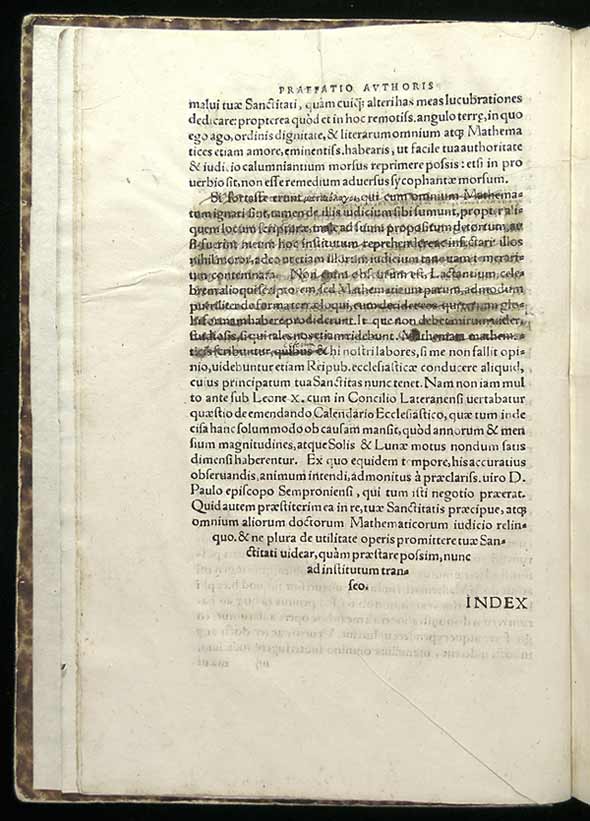 PRAEFATIO AVTHORIS
malui tuæ Sanctitati, quàm cuiq; alteri has meas lucubrationes
dedicare: propterea quòd et in hoc remotiss. angulo terrę, in quo
ego ago, ordinis dignitate, & literarum omnium atq; Mathema
tices etiam amore, eminentiss. habearis, ut facile tua authoritate
& iudicio calumniantium morsus reprimere possis: etsi in pro
uerbio sit, non esse remedium aduersus sycophantæ morsum.
Si fortasse erunt ματαιολόγοι, qui cum omnium Mathema-
tum ignari sint, tamen de illis iudicium sibi sumunt, propter ali-
quem locum scripturæ, male ad suum propositum detortum, au
si fuerint meum hoc institutum reprehendere ac insectari: illos
nihil moror, adeo ut etiam illorum iudicium tanquam temerari-
um contemnam. Non enim obscurum est, Lactantium, cele-
brem alioqui scriptorem, sed Mathematicum parum, admodum
pueriliter de forma terræ loqui, cum deridet eos, qui terram glo-
bi formam habere prodiderunt. Itaque non debet mirum uideri
studiosis, si qui tales nos etiam ridebunt. Mathemata mathema-
ticis scribuntur, quibus & hi nostri labores, si me non fallit opi-
nio, uidebuntur etiam Reipub. ecclesiasticæ conducere aliquid,
cuius principatum tua Sanctitas nunc tenet. Nam non iam mul
to ante sub Leone X. cum in Concilio Lateranensi uertabatur
quæstio de emendando Calendario Ecclesiastico, quæ tum inde
cisa hanc solummodo ob causam mansit, quòd annorum & men
sium magnitudines, atque Solis & Lunæ motus nondum satis
dimensi haberentur. Ex quo equidem tempore, his accuratius
obseruandis, animum intendi, admonitus à præclariss. uiro D.
Paulo episcopo Semproniensi, qui tum isti negotio præerat.
Quid autem præstiterim ea in re, tuæ Sanctitatis præcipue, atq;
omnium aliorum doctorum Mathematicorum iudicio relin-
quo. & ne plura de utilitate operis promittere tuæ San-
ctitati uidear, quàm præstare possim, nunc
ad institutum tran-
seo.
INDEX